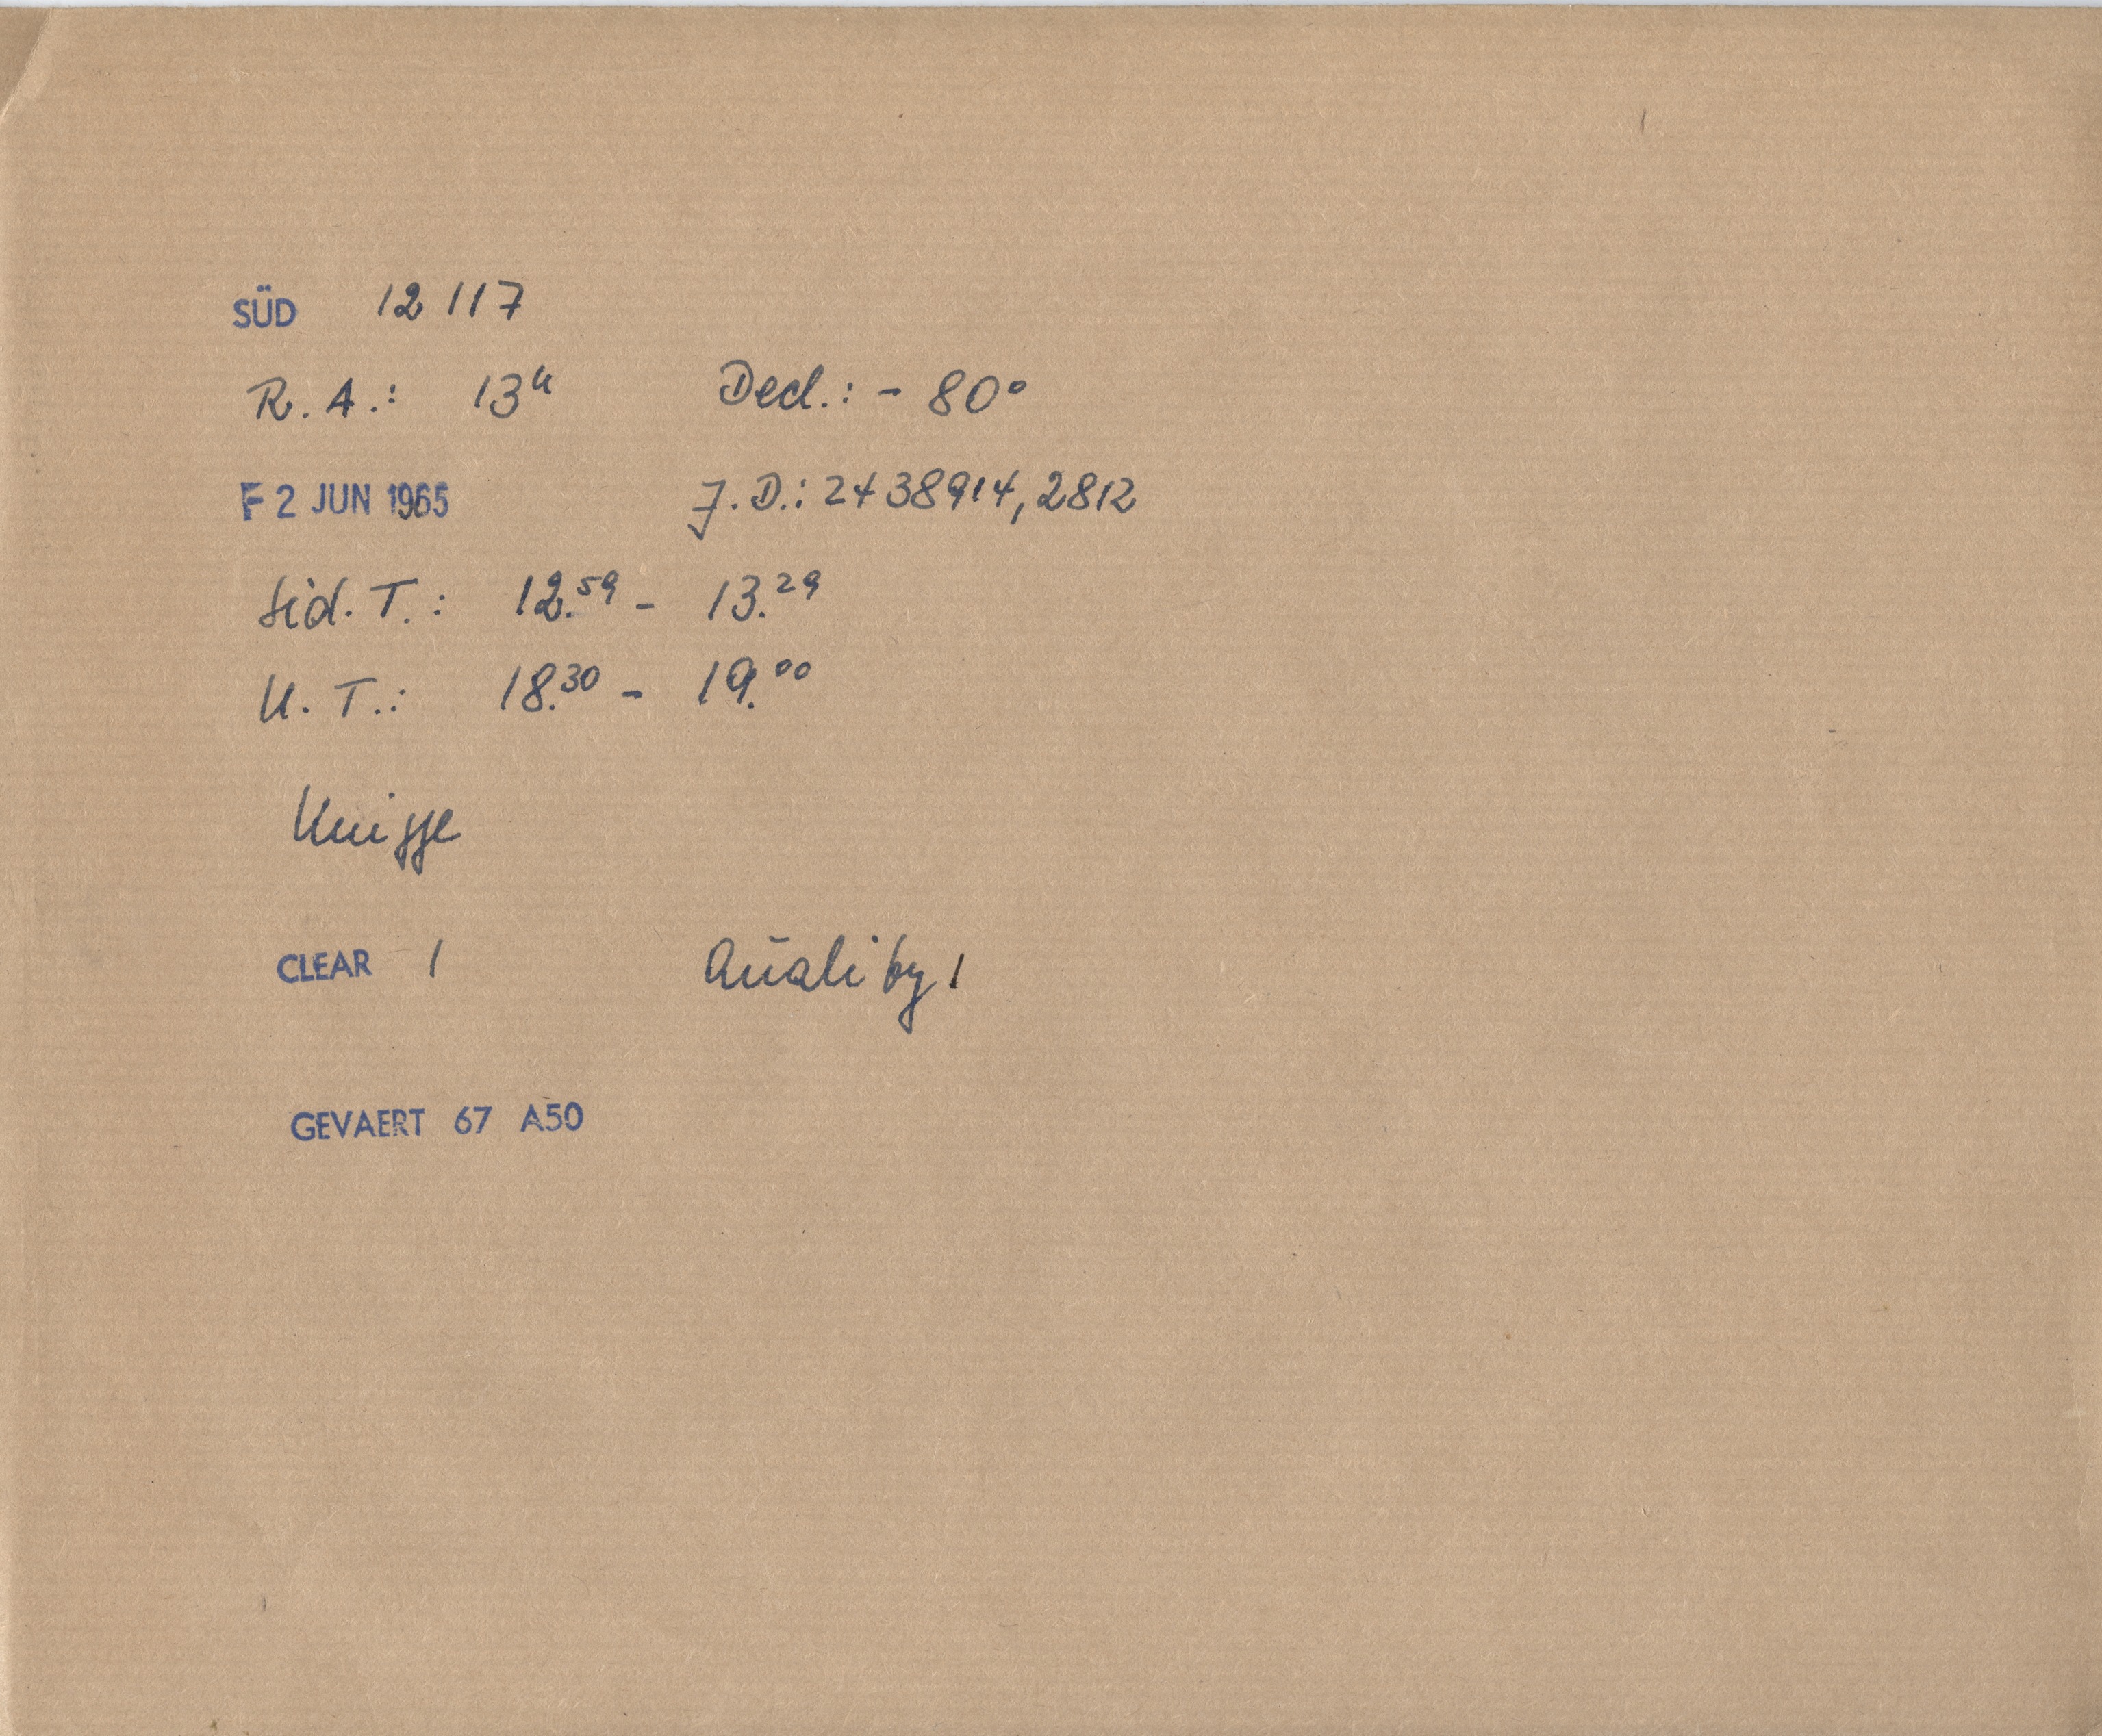 SÜD 12117
R. A.: 13ʰ Decl.: - 80°
F 2 JUN 1965 J. D.: 2438914,2812
Sid. T.: 12.⁵⁹ - 13.²⁹
U. T.: 18.³⁰ - 19.⁰⁰
Knigge
CLEAR 1 Quality 1
GEVAERT 67 A50